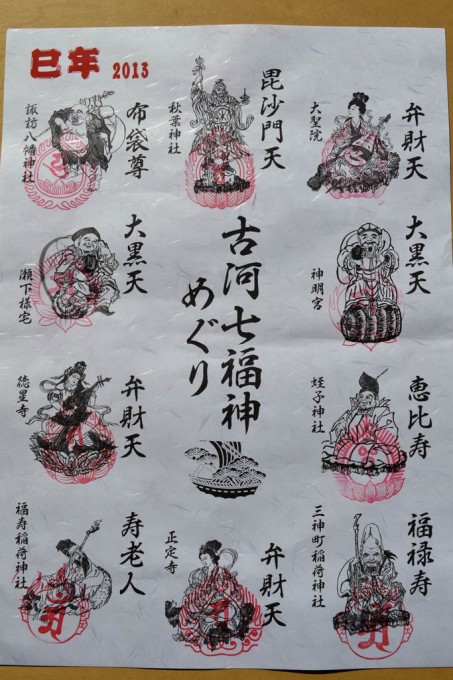 巳年 2013
弁財天
大聖院
毘沙門天
秋葉神社
布袋尊
諏訪八幡神社
大黒天
神明宮
古河七福神
めぐり
大黒天
瀬下様宅
恵比寿
蛭子神社
弁財天
徳星寺
福禄寿
三神町稲荷神社
弁財天
正定寺
寿老人
福寿稲荷神社